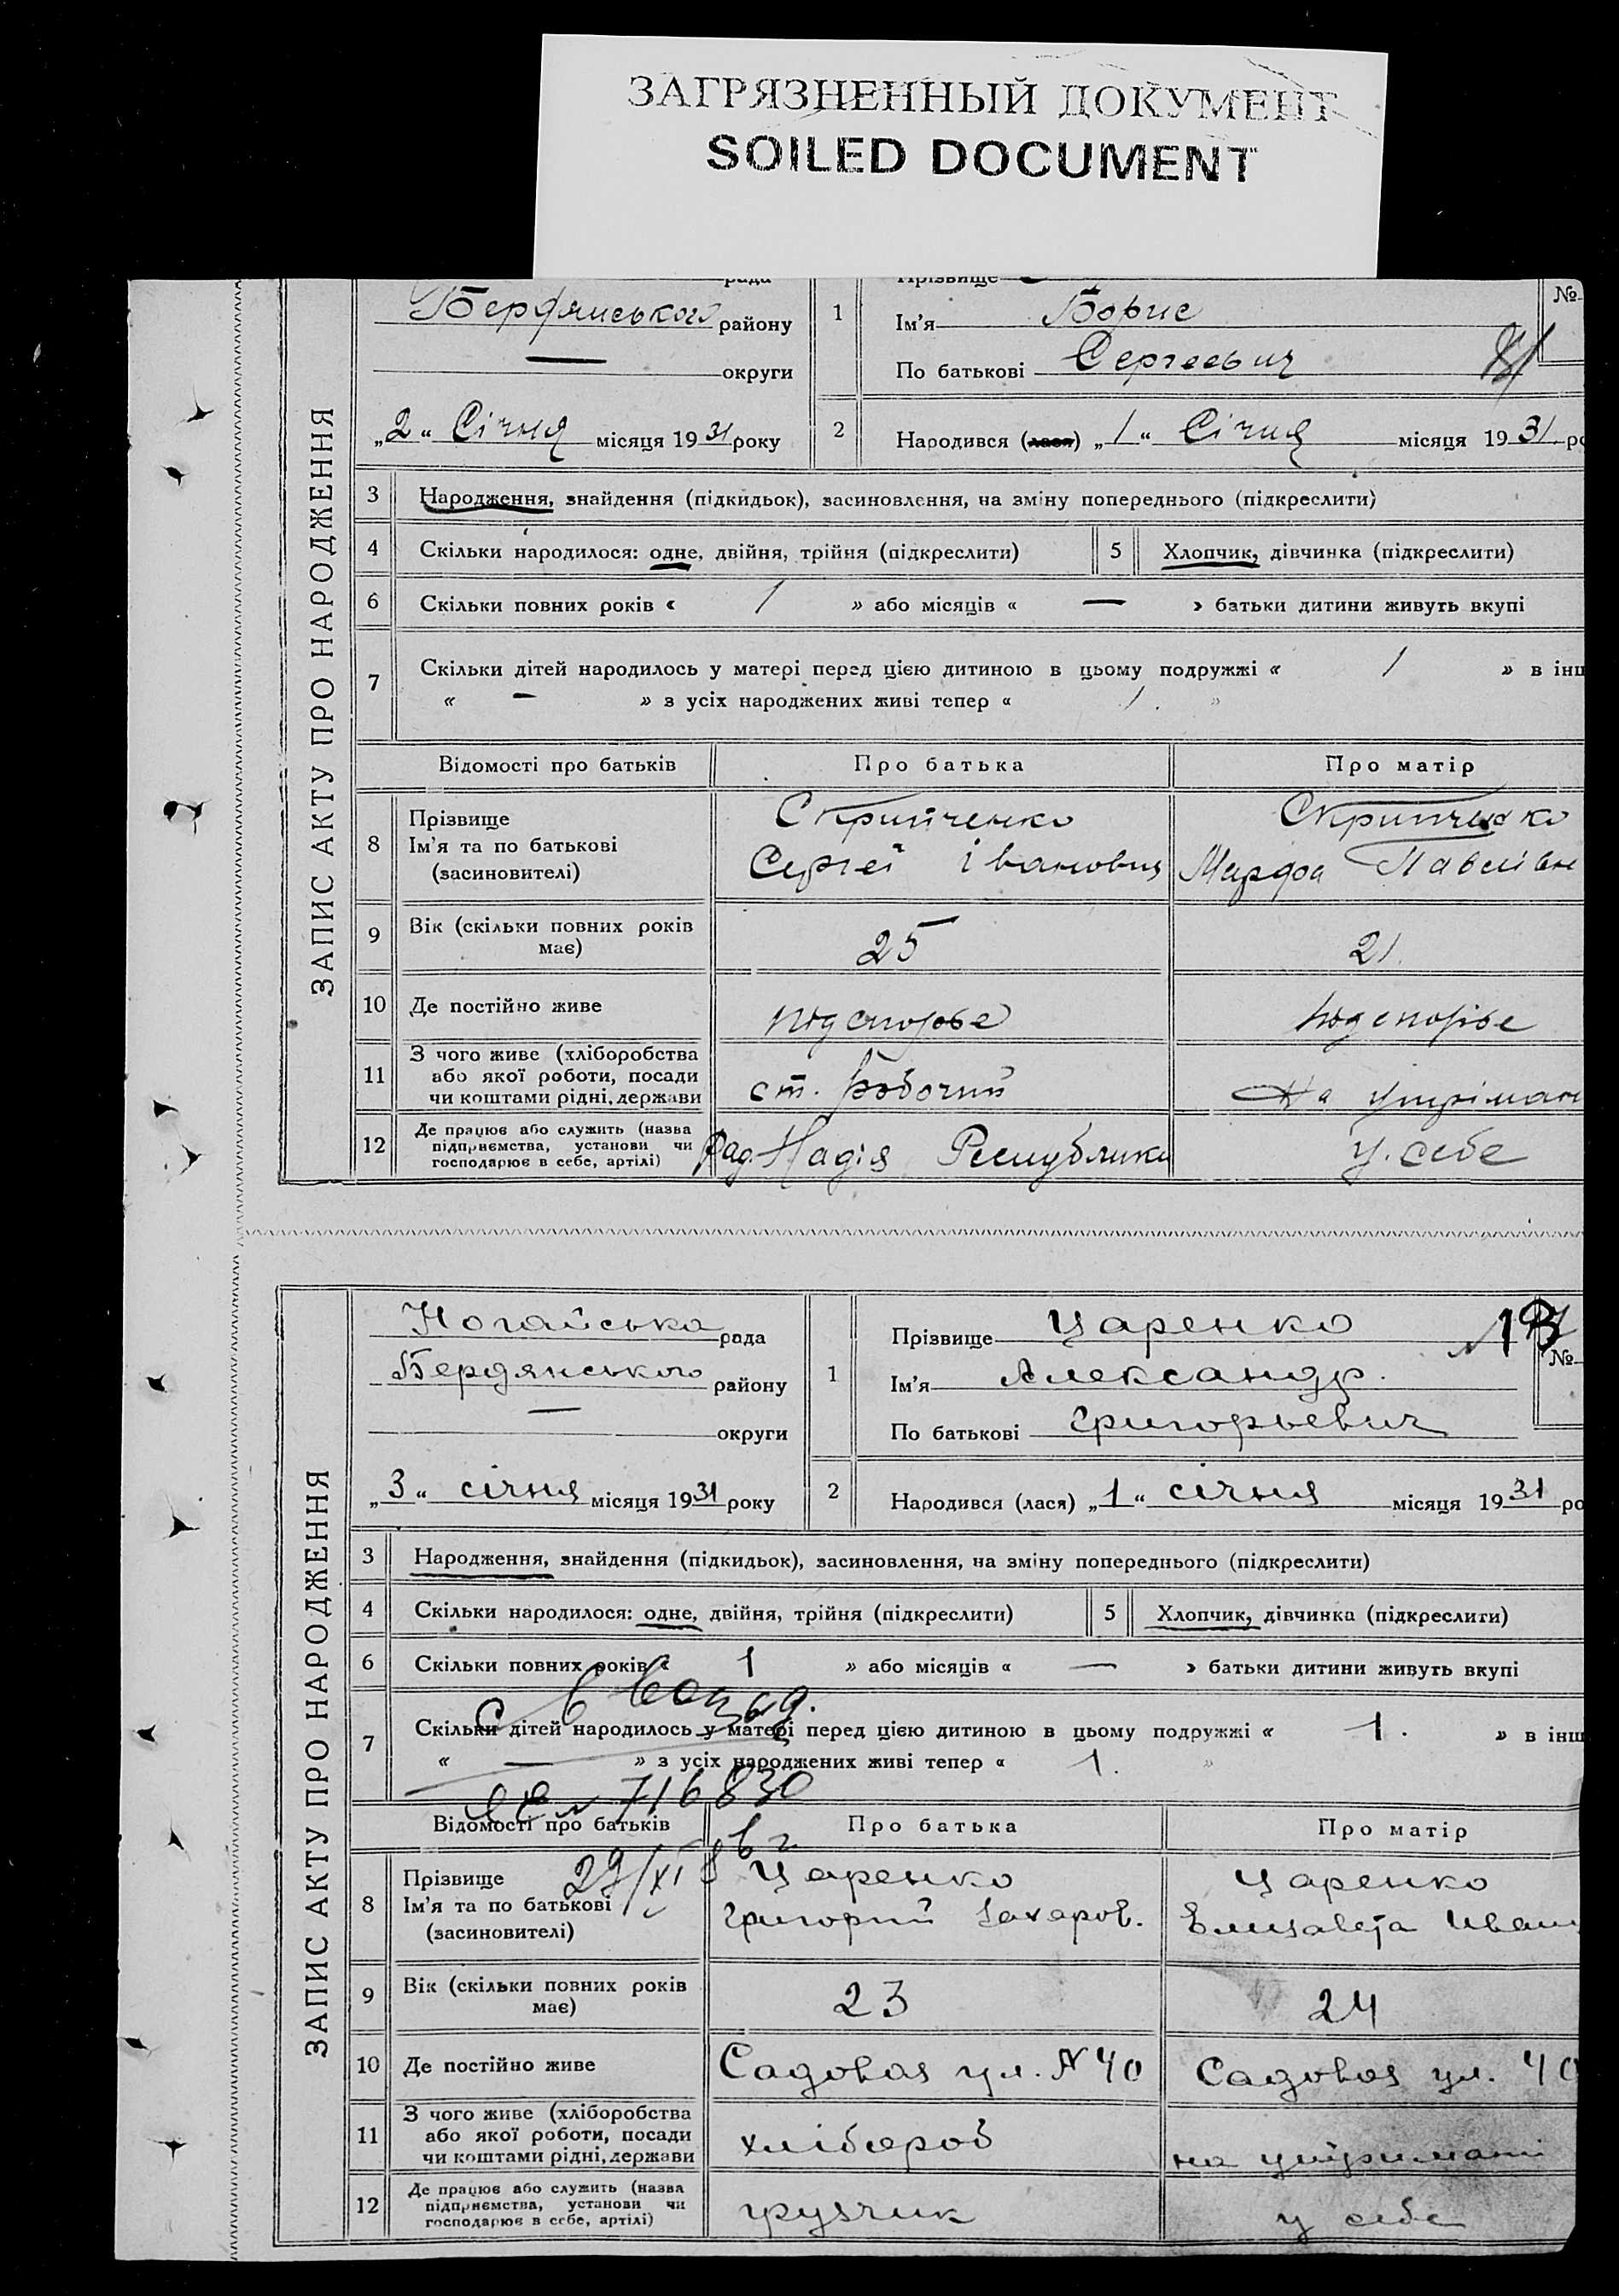 ЗАГРЯЗНЕННЫЙ ДОКУМЕНТ
SOILED DOCUMENT
ЗАПИС АКТУ ПРО НАРОДЖЕННЯ
рада
Бердянського району
— округи
„2“ Січня місяця 1931 року
1
Прізвище
Ім'я Борис
По батькові Сергеевич
№
2 Народився (лася) „1“ Січня місяця 1931 ро
3 Народження, знайдення (підкидьок), засиновлення, на зміну попереднього (підкреслити)
4 Скільки народилося: одне, двійня, трійня (підкреслити) 5 Хлопчик, дівчинка (підкреслити)
6 Скільки повних років « 1 » або місяців « — » батьки дитини живуть вкупі
7 Скільки дітей народилось у матері перед цією дитиною в цьому подружжі « 1 » в інш
« — » з усіх народжених живі тепер « 1. »
Відомості про батьків Про батька Про матір
8 Прізвище
Ім'я та по батькові
(засиновителі)
Скрипченко
Сергеі Іванович
Скрипченко
Марфа Павлівн
9 Вік (скільки повних років має) 25 21
10 Де постійно живе подспорье подспорье
11 З чого живе (хліборобства
або якої роботи, посади
чи коштами рідні, держави
ст. робочий На утріман
12 Де працює або служить (назва
підприємства, установи чи
господарює в себе, артілі)
Рад. Надія Республики у себе
ЗАПИС АКТУ ПРО НАРОДЖЕННЯ
Ногайська рада
Бердянського району
— округи
„3“ січня місяця 1931 року
1
Прізвище Царенко
Ім'я Александр.
По батькові Григорьевич
№
2 Народився (лася) „1“ січня місяця 1931 ро
3 Народження, знайдення (підкидьок), засиновлення, на зміну попереднього (підкреслити)
4 Скільки народилося: одне, двійня, трійня (підкреслити) 5 Хлопчик, дівчинка (підкреслити)
6 Скільки повних років « 1 » або місяців « — » батьки дитини живуть вкупі
7 Скільки дітей народилось у матері перед цією дитиною в цьому подружжі « 1. » в інш
« — » з усіх народжених живі тепер « 1. »
716830
Відомості про батьків Про батька Про матір
8 Прізвище
Ім'я та по батькові
(засиновителі)
Царенко
Григорий Захаров.
Царенко
Елизавета Иван
9 Вік (скільки повних років має) 23 24
10 Де постійно живе Садовая ул. N 40 Садовая ул. 40
11 З чого живе (хліборобства
або якої роботи, посади
чи коштами рідні, держави
хлібороб на утримані
12 Де працює або служить (назва
підприємства, установи чи
господарює в себе, артілі)
грузчик у себе